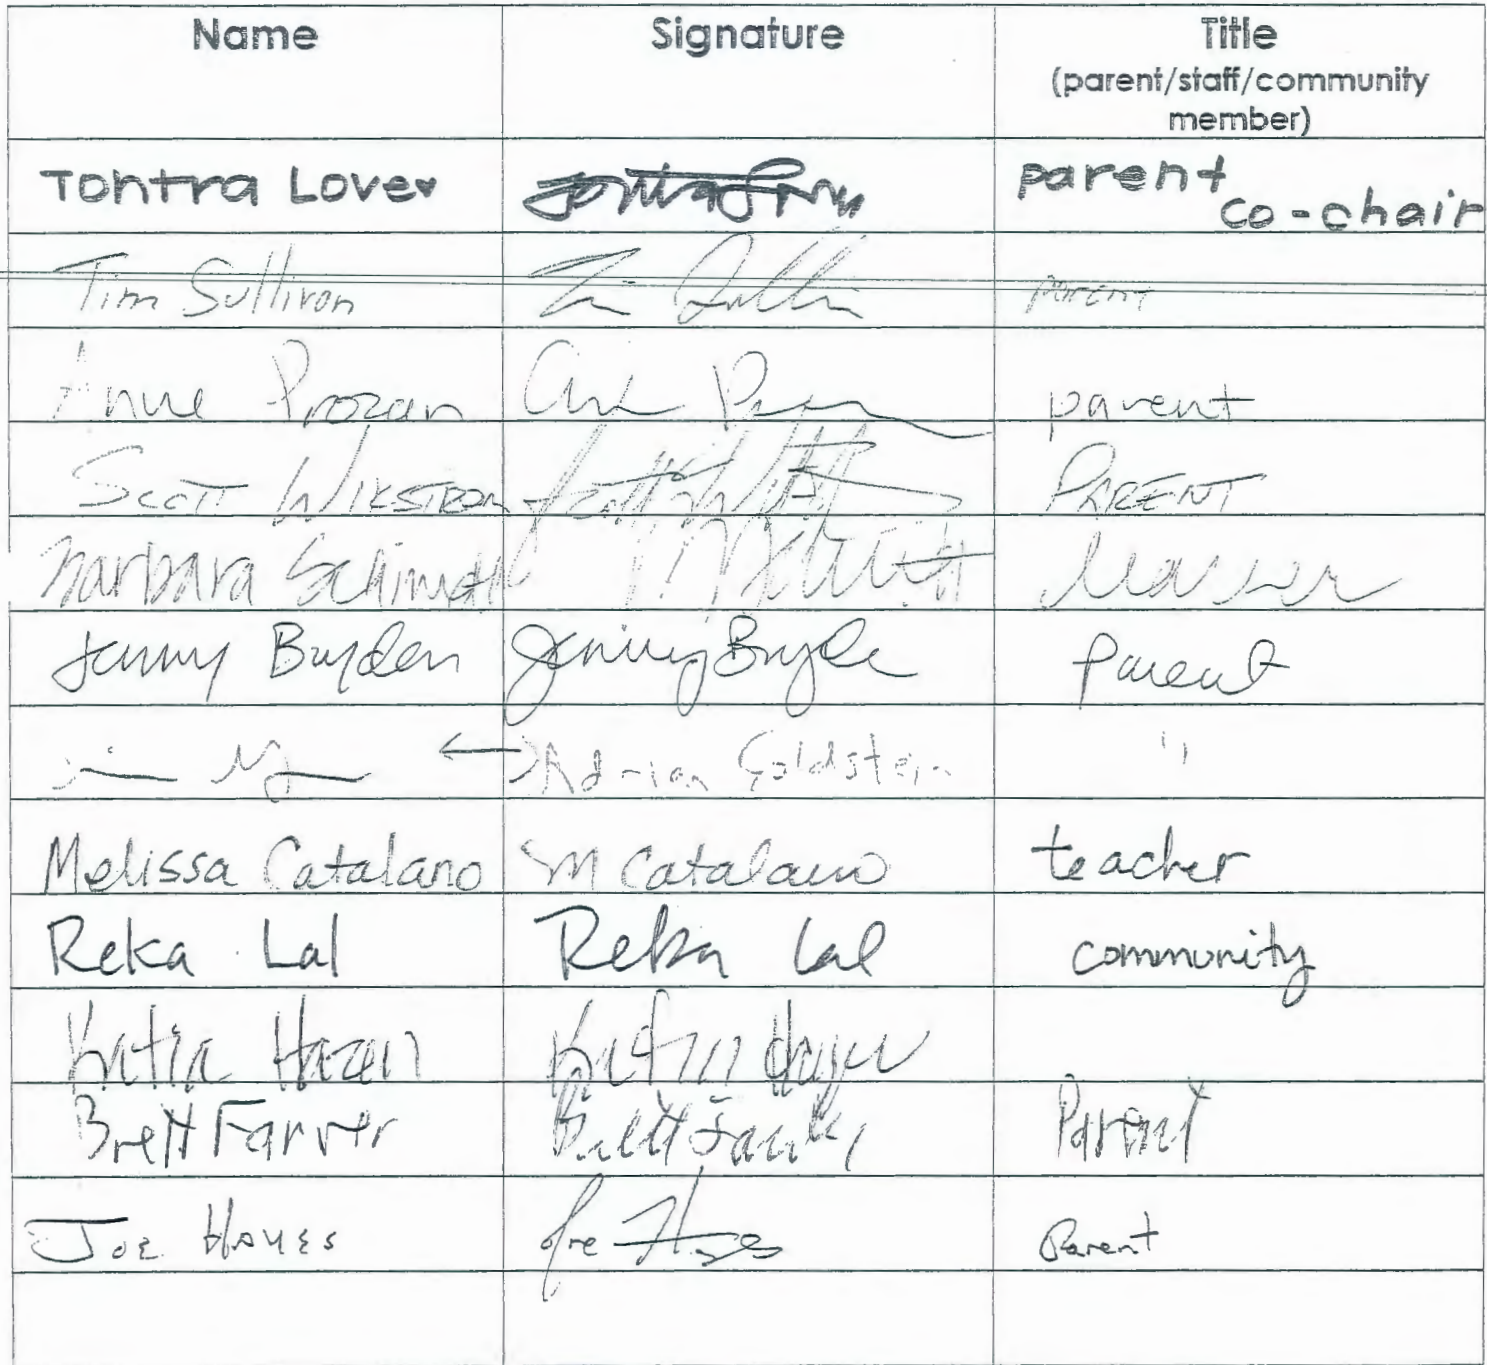 Name Signature Title
(parent/staff/community
member)
Tontra Love♥ parent
co-chair
Tim Sullivan Tim Sullivan parent
Anne Prozan parent
Scott Wikstrom PARENT
Barbara Schmidt
Jenny Bryden Jenny Bryde Parent
Adrian Goldstein "
Melissa Catalano M Catalano teacher
Reka Lal Reka Lal community
Katia Hazen
Brett Farver Parent
Joe Hayes Joe Parent